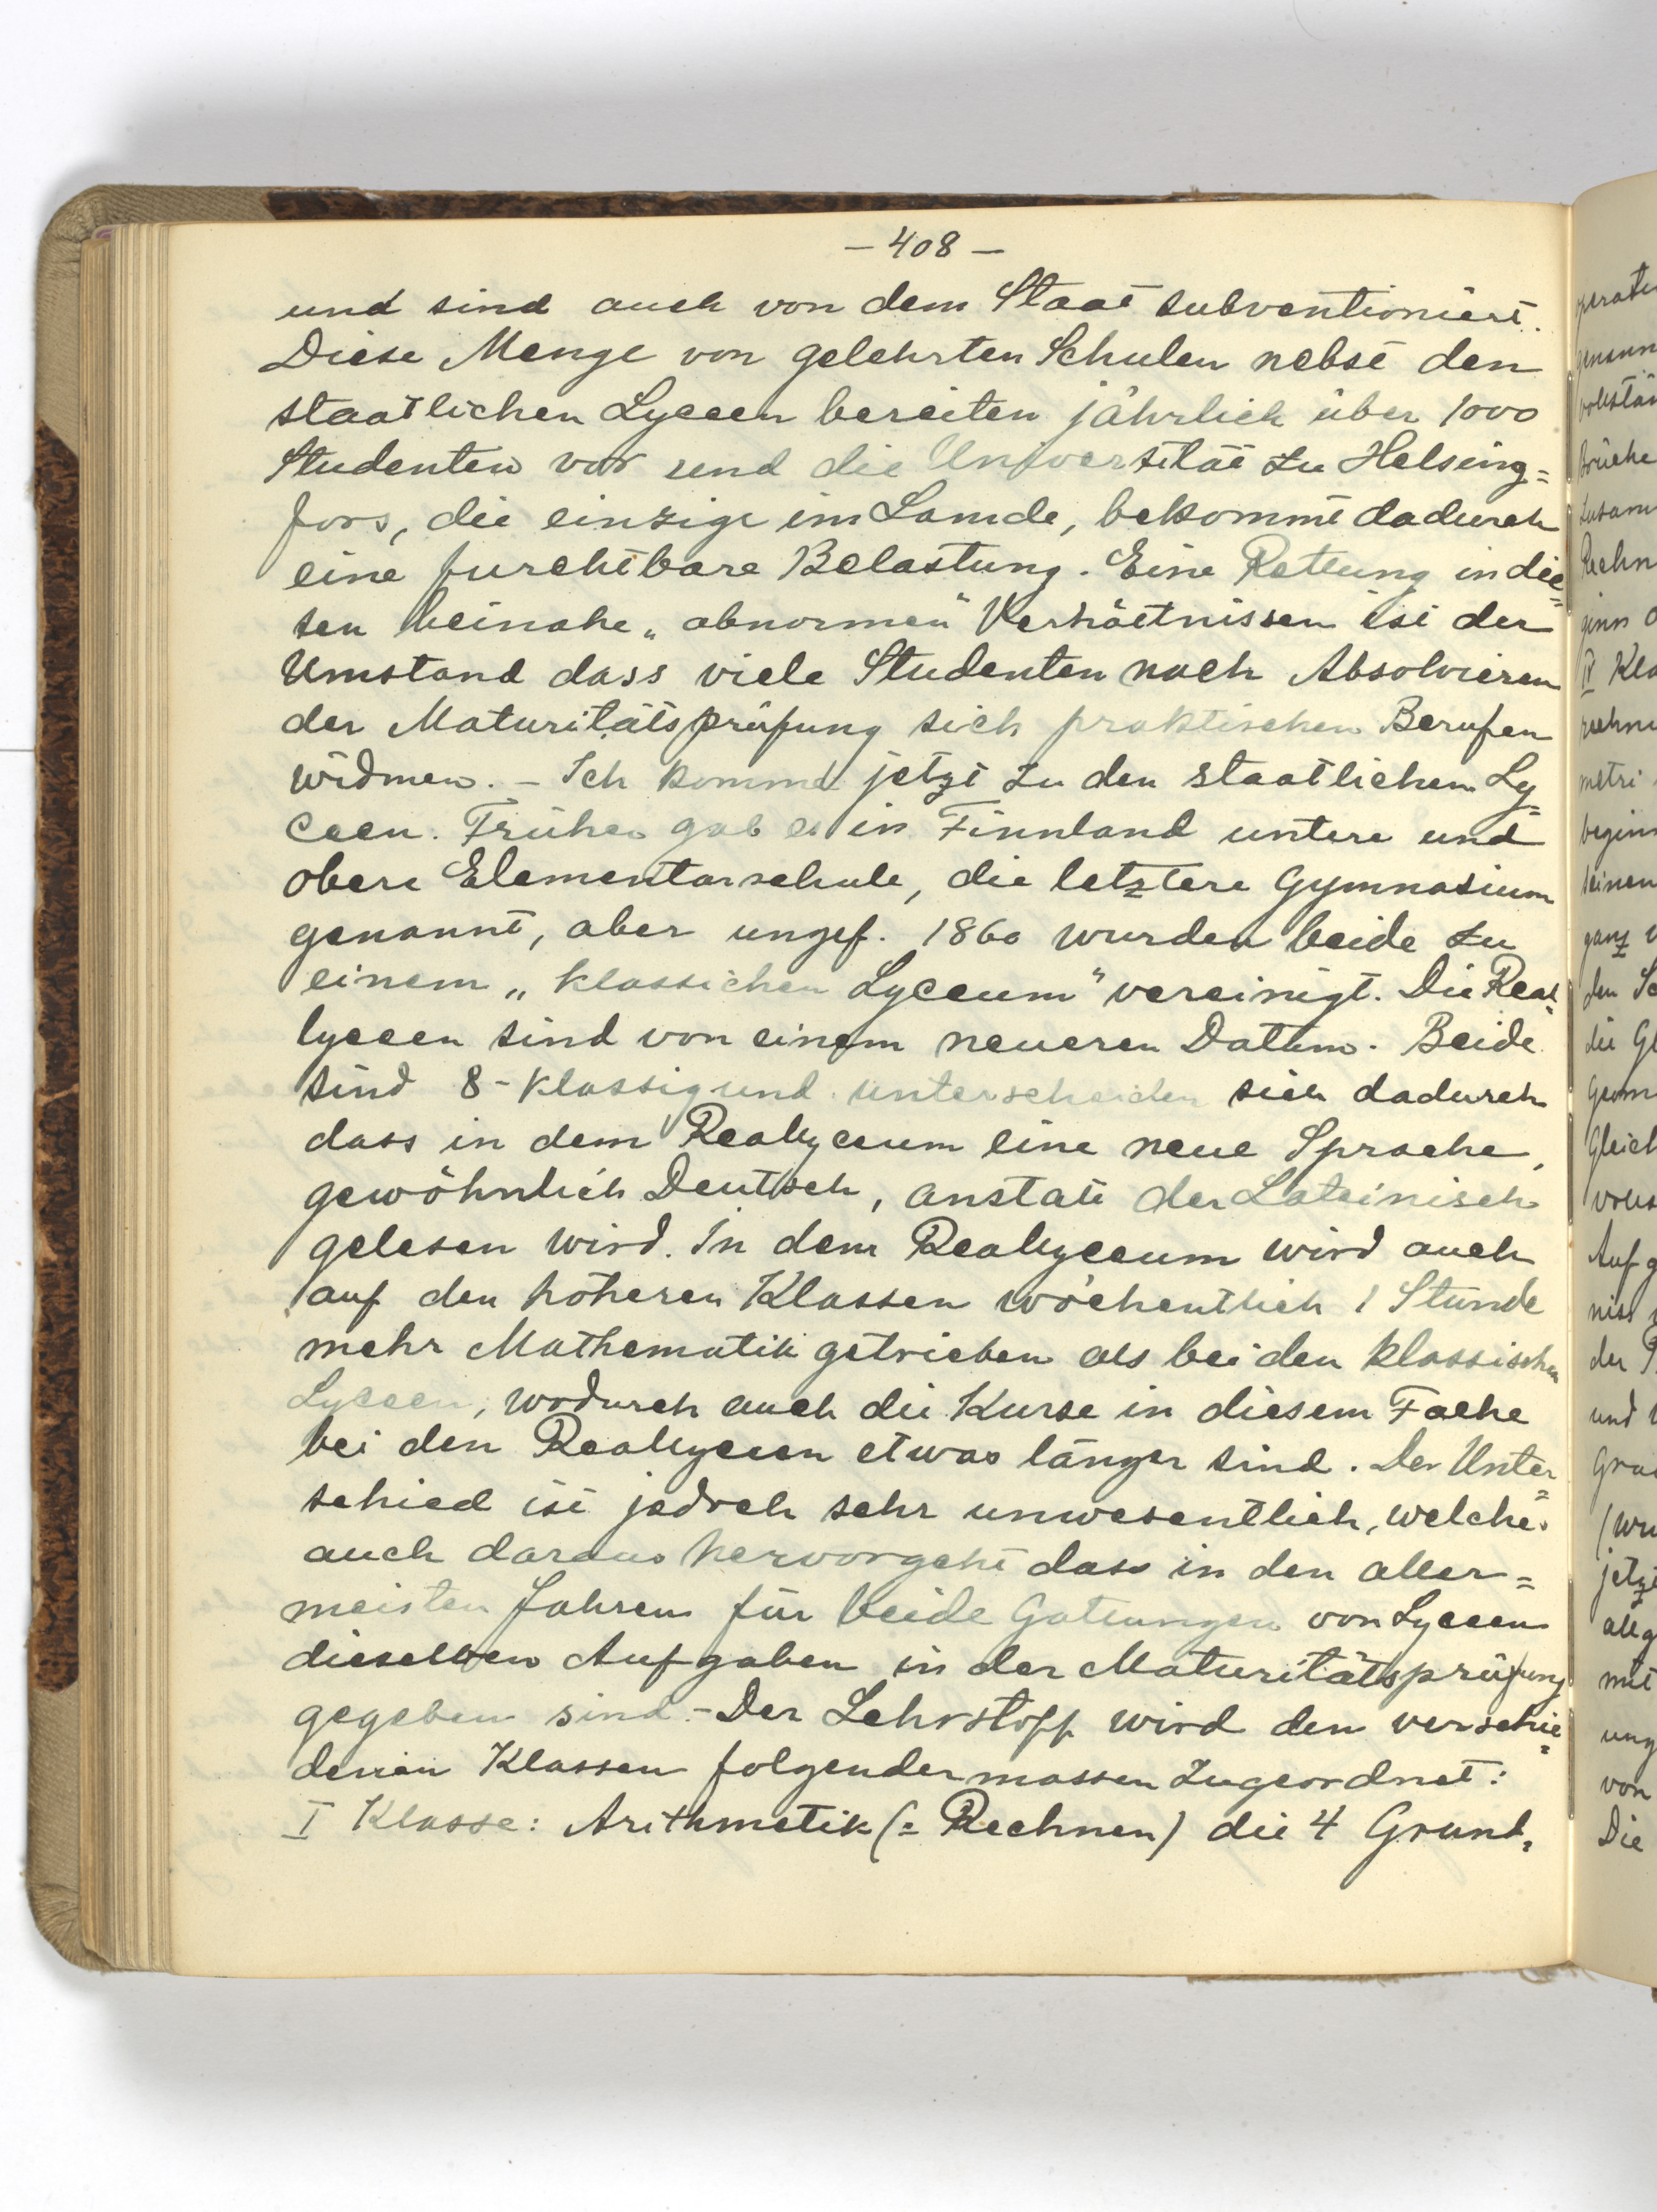 — 408 —
und sind auch von dem Staat subventioniert.
Diese Menge von gelehrten Schulen nebst den
staatlichen Lyceen bereiten jährlich über 1000
Studenten vor und die Universität zu Helsing=
fors, die einzige im Lande, bekommt dadurch
eine furchtbare Belastung. Eine Rettung in die=
sen beinahe „abnormen" Verhältnissen ist der
Umstand dass viele Studenten nach Absolvieren
der Maturitätsprüfung sich praktischen Berufen
widmen. – Ich komme jetzt zu den staatlichen Ly=
ceen. Früher gab es in Finnland untere und
obere Elementarschule, die letztere Gymnasium
genannt, aber ungef. 1860 wurden beide zu
einem „klassichen Lyceum" vereinigt. Die Real=
lyceen sind von einem neueren Datum. Beide
sind 8-klassig und unterscheiden sich dadurch
dass in dem Reallyceum eine neue Sprache,
gewöhnlich Deutsch, anstatt der Lateinisch
gelesen wird. In dem Reallyceum wird auch
auf den höheren Klassen wöchentlich 1 Stunde
mehr Mathematik getrieben als bei den klassischen
Lyceen, wodurch auch die Kurse in diesem Fache
bei den Reallyceen etwas länger sind. Der Unter=
schied ist jedoch sehr unwesentlich, welches
auch daraus hervorgeht dass in den aller=
meisten Jahren für beide Gattungen von Lyceen
dieselben Aufgaben in der Maturitätsprüfung
gegeben sind. – Der Lehrstoff wird den verschie=
denen Klassen folgendermassen zugeordnet:
I Klasse: Arithmetik (= Rechnen) die 4 Grund=